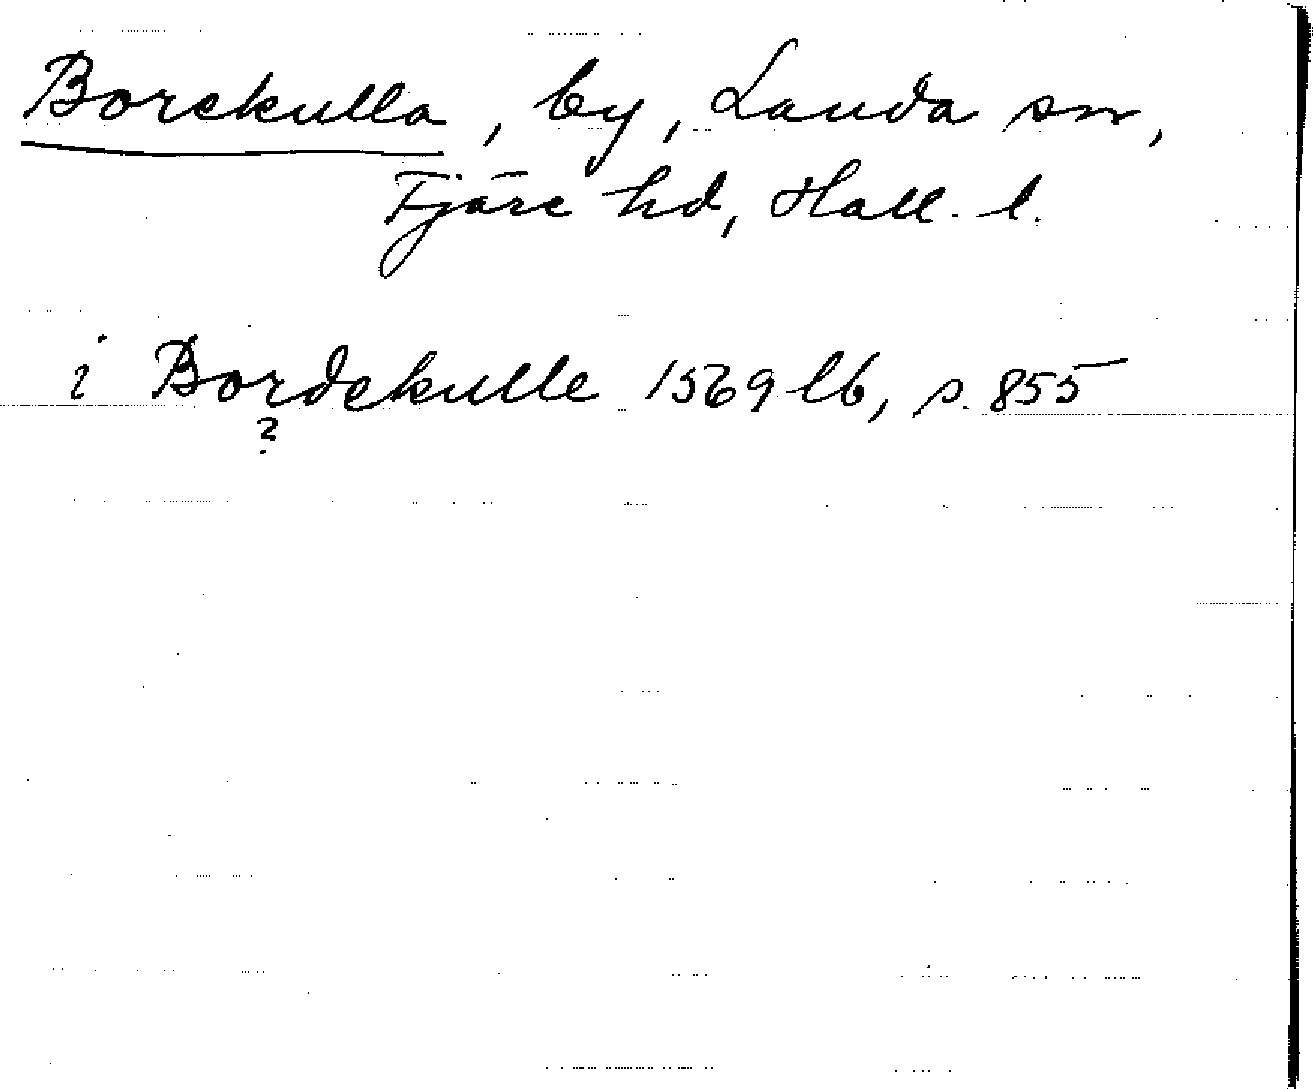 Borekulla, by, Landa sn,
Fjäre hd, Hall. l.
i Bordekulle 1569 lb, s. 855
?